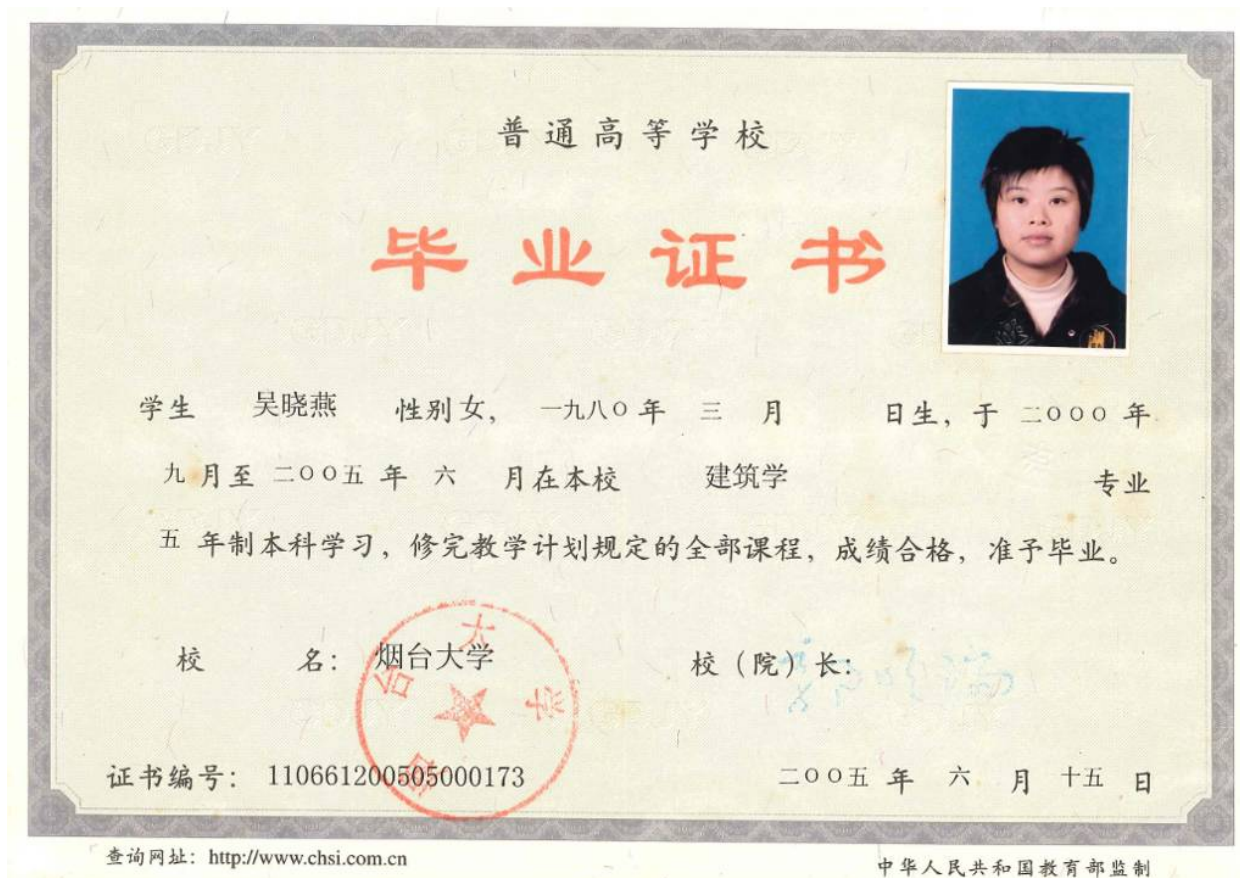 普通高等学校
毕业证书
学生 吴晓燕 性别女, 一九八〇年 三 月 日生, 于 二〇〇〇 年
九 月至 二〇〇五 年 六 月在本校 建筑学 专业
五 年制本科学习, 修完教学计划规定的全部课程, 成绩合格, 准予毕业。
校 名: 烟台大学 校(院)长:
烟台大学
证书编号: 110661200505000173 二〇〇五 年 六 月 十五 日
查询网址: http://www.chsi.com.cn 中华人民共和国教育部监制